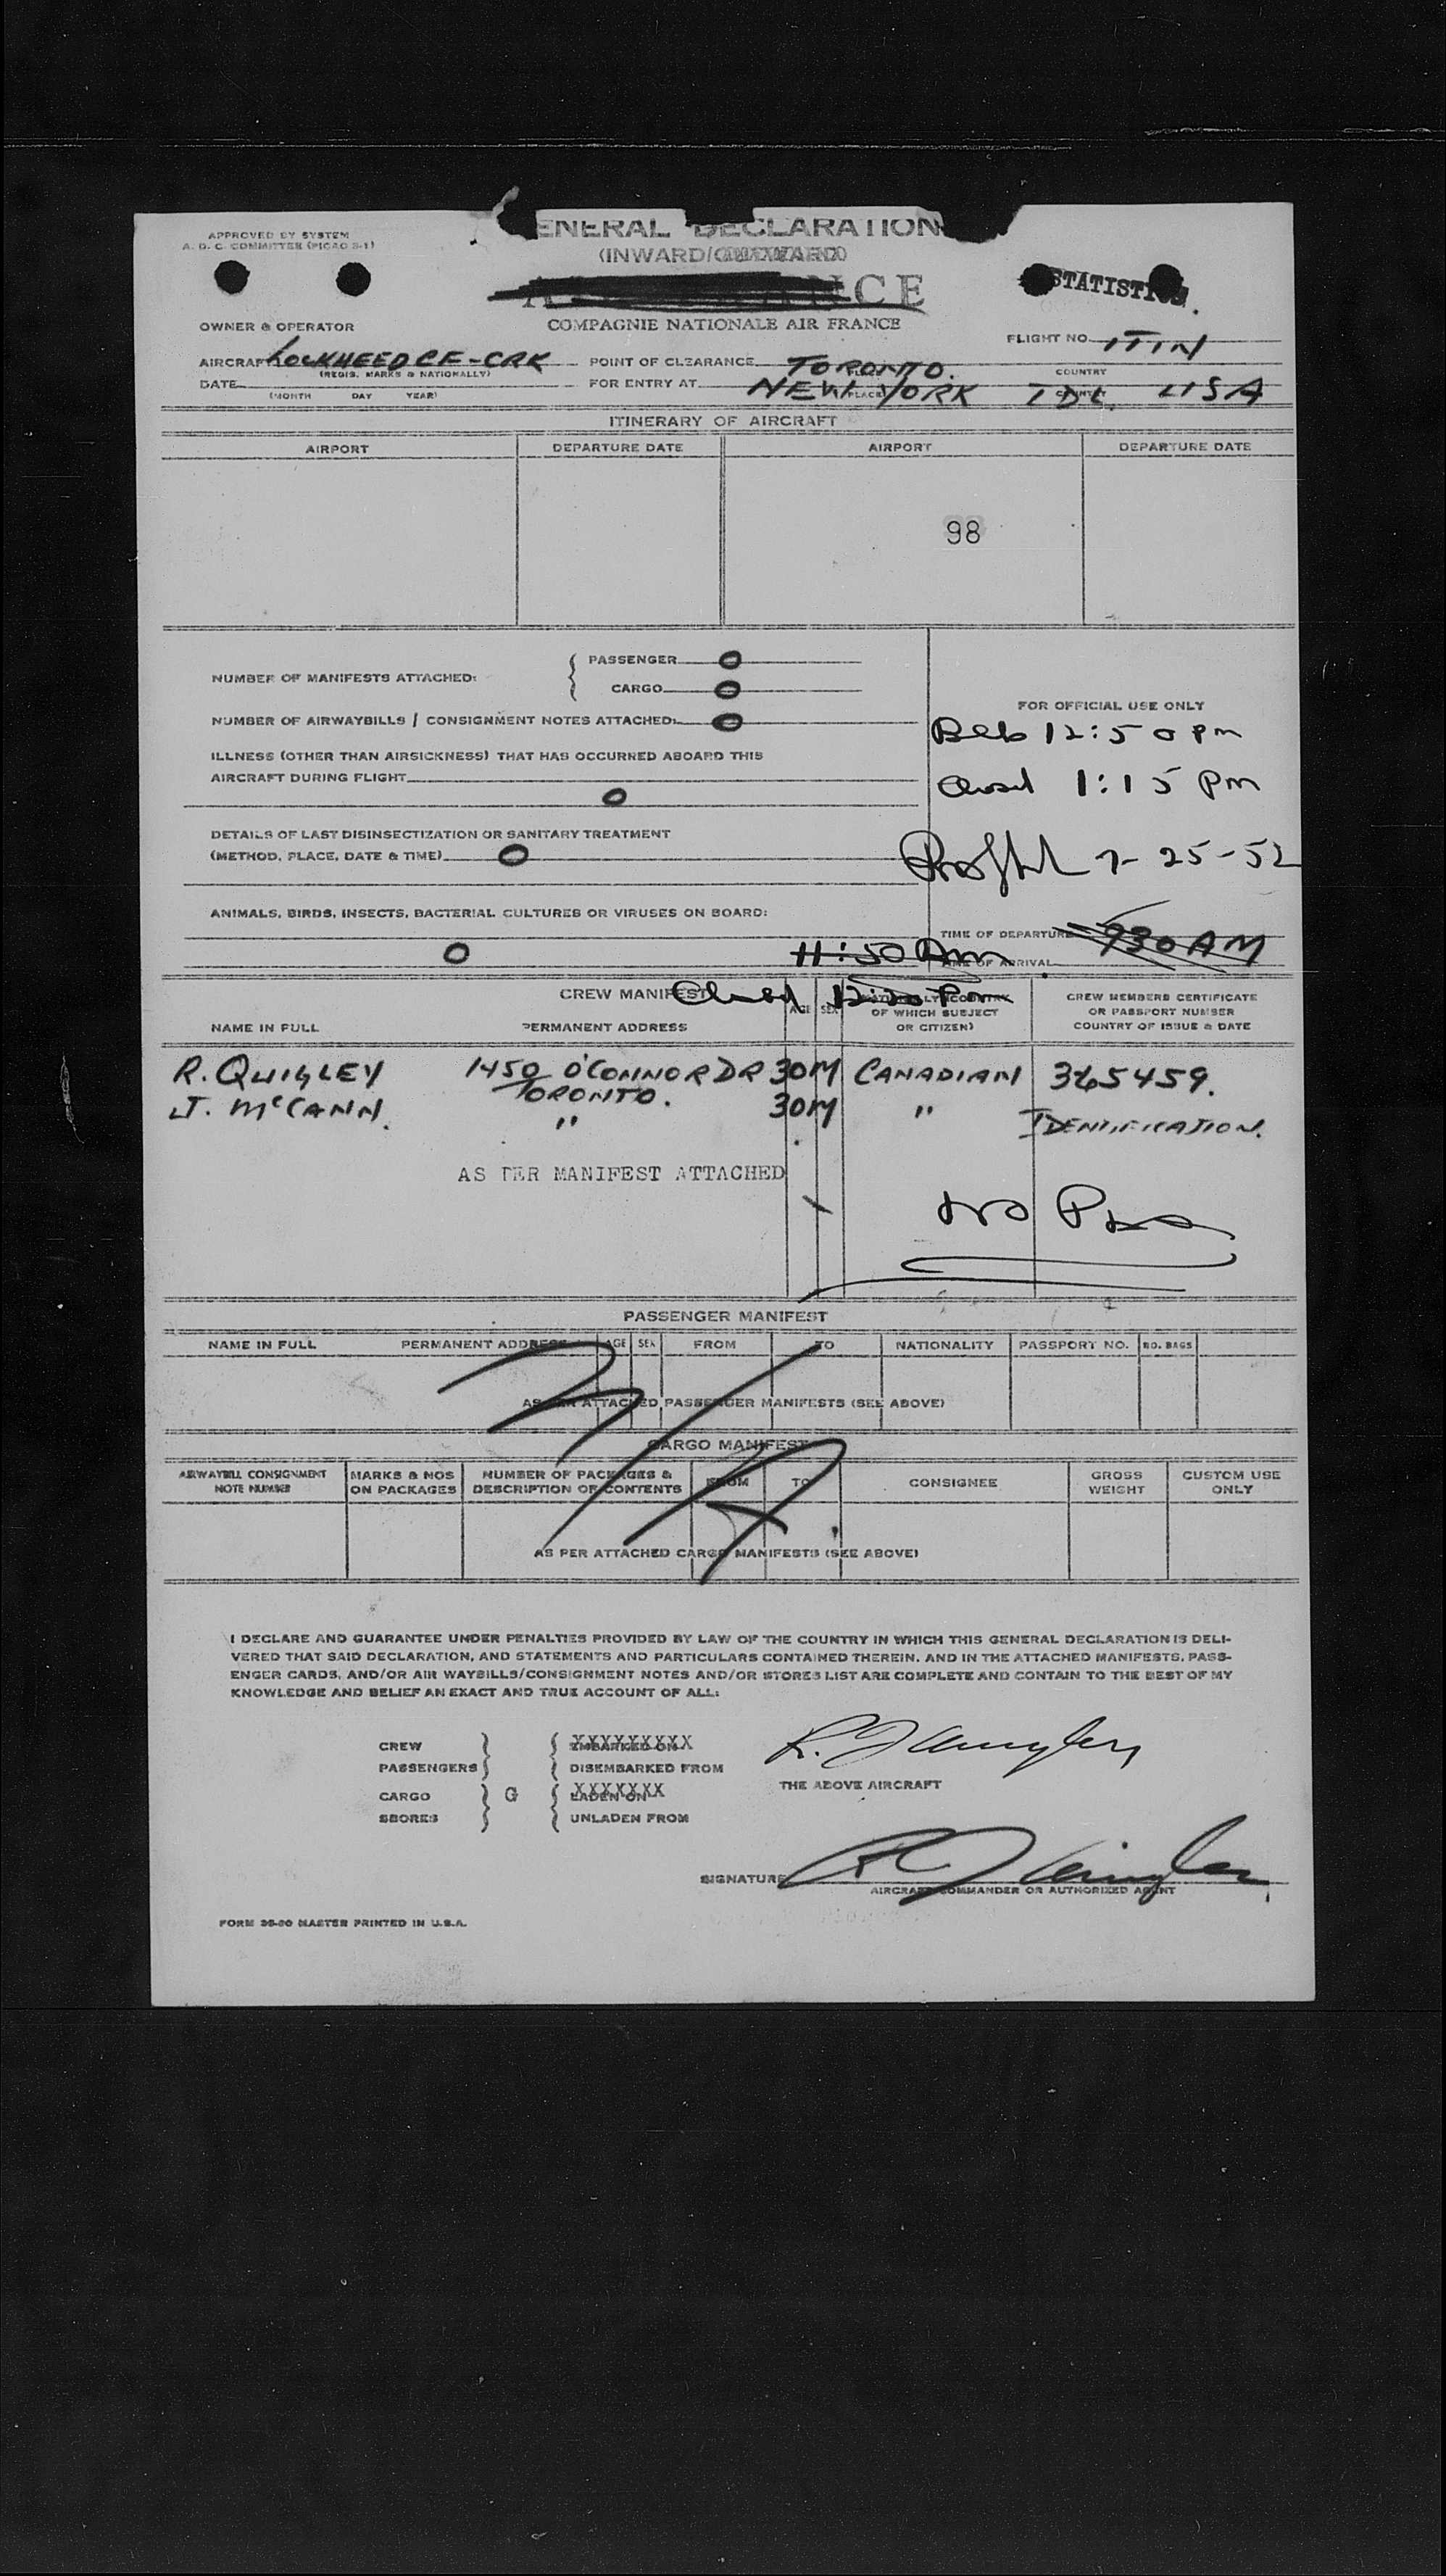 ENERAL DECLARATION
APPROVED BY SYSTEM
A. O. C. COMMITTEE (PICAO S-1)
(INWARD/OUTWARD)
CE
STATISTI
COMPAGNIE NATIONALE AIR FRANCE
OWNER & OPERATOR
FLIGHT NO. ITIN
AIRCRAFT LOCKHEED CF-CRK POINT OF CLEARANCE TORONTO.
(REGIS. MARKS & NATIONALLY) COUNTRY
DATE FOR ENTRY AT NEW YORK IDL USA
(MONTH DAY YEAR) (PLACE) COUNTRY
ITINERARY OF AIRCRAFT
AIRPORT DEPARTURE DATE AIRPORT DEPARTURE DATE
98
NUMBER OF MANIFESTS ATTACHED: PASSENGER O
CARGO O
FOR OFFICIAL USE ONLY
NUMBER OF AIRWAYBILLS / CONSIGNMENT NOTES ATTACHED: O
12:50 pm
ILLNESS (OTHER THAN AIRSICKNESS) THAT HAS OCCURRED ABOARD THIS
AIRCRAFT DURING FLIGHT O
Closed 1:15 pm
DETAILS OF LAST DISINSECTIZATION OR SANITARY TREATMENT
(METHOD, PLACE, DATE & TIME) O
7-25-52
ANIMALS, BIRDS, INSECTS, BACTERIAL CULTURES OR VIRUSES ON BOARD:
TIME OF DEPARTURE 930 AM
O 11:50 Am TIME OF ARRIVAL
CREW MANIFEST Closed 12:20 Pm
NAME IN FULL PERMANENT ADDRESS AGE SEX NATIONALITY (COUNTRY OF WHICH SUBJECT OR CITIZEN) CREW MEMBERS CERTIFICATE OR PASSPORT NUMBER COUNTRY OF ISSUE & DATE
R. QUIGLEY 1450 O'CONNOR DR 30 M CANADIAN 365459.
TORONTO.
J. McCANN. " 30 M " IDENTIFICATION.
AS PER MANIFEST ATTACHED
No Pax
PASSENGER MANIFEST
NAME IN FULL PERMANENT ADDRESS AGE SEX FROM TO NATIONALITY PASSPORT NO. NO. BAGS
AS PER ATTACHED PASSENGER MANIFESTS (SEE ABOVE)
CARGO MANIFEST
AIRWAYBILL CONSIGNMENT NOTE NUMBER MARKS & NOS ON PACKAGES NUMBER OF PACKAGES & DESCRIPTION OF CONTENTS FROM TO CONSIGNEE GROSS WEIGHT CUSTOM USE ONLY
AS PER ATTACHED CARGO MANIFESTS (SEE ABOVE)
I DECLARE AND GUARANTEE UNDER PENALTIES PROVIDED BY LAW OF THE COUNTRY IN WHICH THIS GENERAL DECLARATION IS DELI-
VERED THAT SAID DECLARATION, AND STATEMENTS AND PARTICULARS CONTAINED THEREIN. AND IN THE ATTACHED MANIFESTS, PASS-
ENGER CARDS, AND/OR AIR WAYBILLS/CONSIGNMENT NOTES AND/OR STORES LIST ARE COMPLETE AND CONTAIN TO THE BEST OF MY
KNOWLEDGE AND BELIEF AN EXACT AND TRUE ACCOUNT OF ALL:
CREW EMBARKED ON
PASSENGERS DISEMBARKED FROM
THE ABOVE AIRCRAFT
CARGO G LADEN ON
SBORES UNLADEN FROM
SIGNATURE
AIRCRAFT COMMANDER OR AUTHORIZED AGENT
FORM 36-90 MASTER PRINTED IN U.S.A.